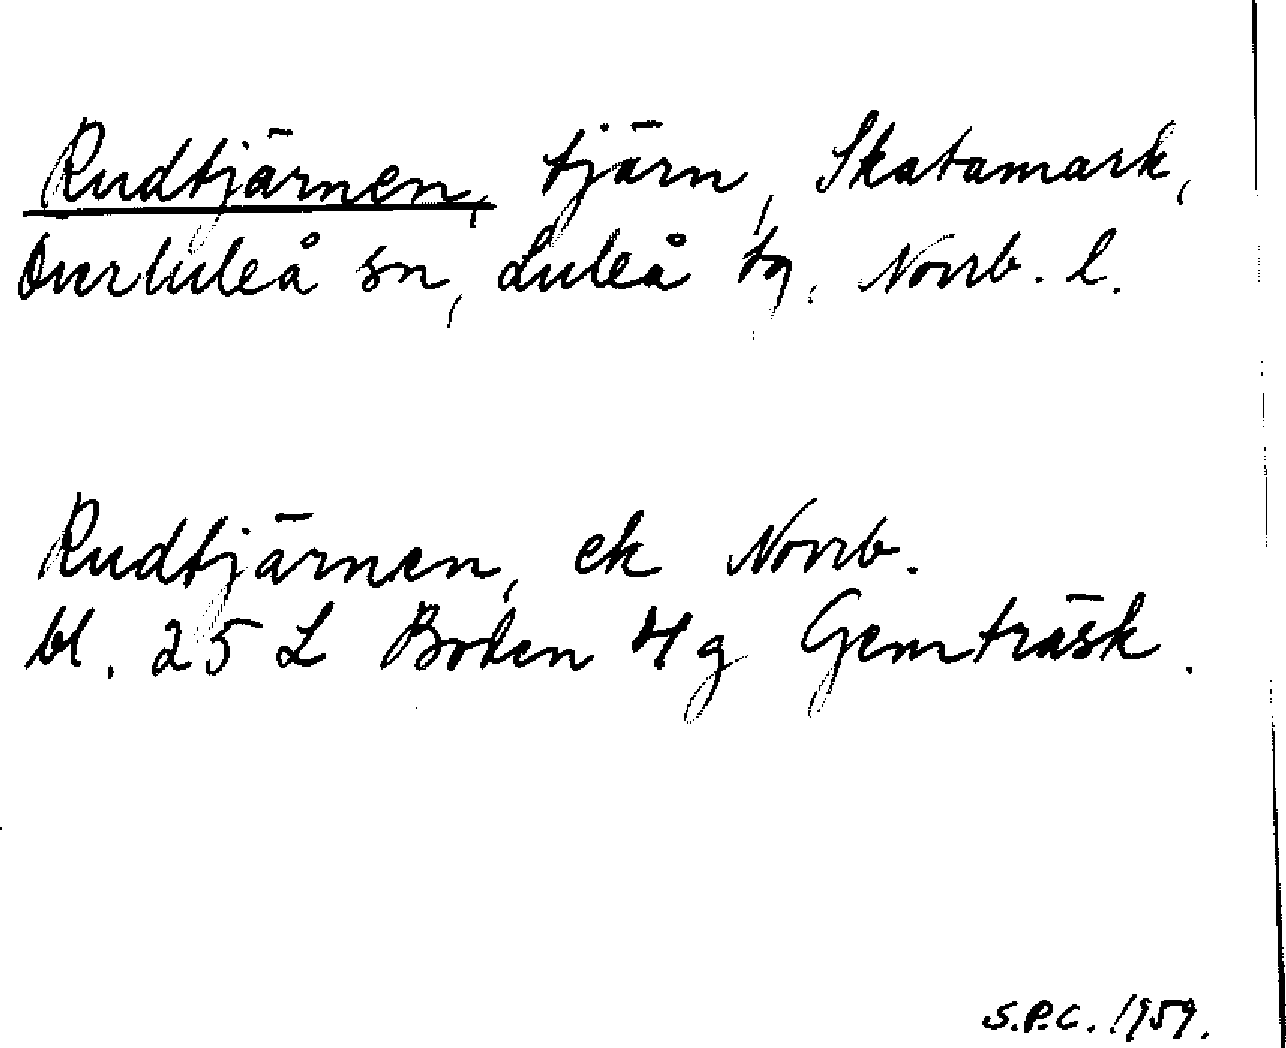 Rudtjärnen, tjärn, Skatamark,
Överluleå sn, Luleå tg, Norrb. l.
Rudtjärnen, ek Norrb.
bl. 25 L Boden 4g Gemträsk.
S.P.C. 1959.